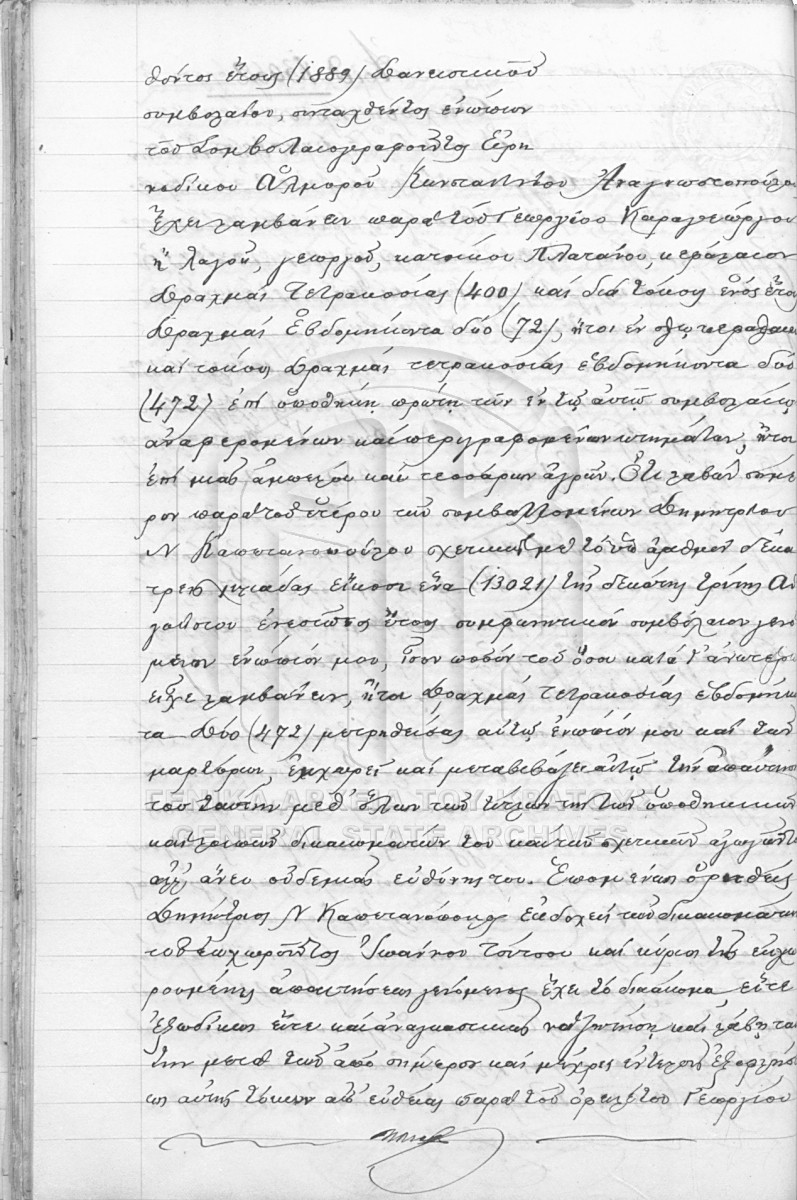 θόντος ἔτους (1889) δανειστικοῦ
συμβολαίου, συνταχθέντος ἐνώπιον
τοῦ Συμβολαιογραφοῦντος Εἰρη
νοδίκου Ἁλμυροῦ Κωνσταντίνου Ἀναγνωστοπούλου
ἔχει λαμβάνειν παρὰ τοῦ Γεωργίου Καραγεώργου
ἢ Λαγοῦ, γεωργοῦ, κατοίκου Πλατάνου, κεφάλαιον
δραχμὰς Τετρακοσίας (400) καὶ διὰ τόκους ἑνὸς ἔτους
δραχμὰς Ἑβδομήκοντα δύο (72), ἤτοι ἐν ὅλῳ κεφάλαιον
καὶ τόκους δραχμὰς τετρακοσίας ἑβδομήκοντα δύο
(472) ἐπὶ ὑποθήκῃ πρώτῃ τῶν ἐν τῷ αὐτῷ συμβολαίῳ
ἀναφερομένων καὶ περιγραφομένων κτημάτων, ἤτοι
ἐπὶ μιᾶς ἀμπέλου καὶ τεσσάρων ἀγρῶν. Ὅτι λαβὼν σήμε
ρον παρὰ τοῦ ἑτέρου τῶν συμβαλλομένων Δημητρίου
Ν Καπετανοπούλου σχετικῶς μὲ τὸ ὑπ' ἀριθμὸν δέκα
τρεῖς χιλιάδας εἴκοσι ἕνα (13021) τῆς δεκάτης τρίτης Αὐ
γούστου ἐνεστῶτος ἔτους συμφωνητικὸν συμβόλαιον γενό
μενον ἐνώπιόν μου, ἴσον ποσὸν τοῦ ὅσου κατὰ τ' ἀνωτέρω
εἶχε λαμβάνειν, ἤτοι δραχμὰς τετρακοσίας ἑβδομήκον
τα δύο (472) μετρηθείσας αὐτῷ ἐνώπιόν μου καὶ τῶν
μαρτύρων, ἐκχωρεῖ καὶ μεταβιβάζει αὐτῷ τὴν ἀπαίτησιν
του ταύτην μεθ' ὅλων τῶν τίτλων της τῶν ὑποθηκικῶν
καὶ λοιπῶν δικαιωμάτων του καὶ τῶν σχετικῶν ἀγωγῶν
ἀλλ' ἄνευ οὐδεμιᾶς εὐθύνης του. Ἑπομένως ὁ ῥηθεὶς
Δημήτριος Ν Καπετανόπουλος ἐκδοχεὺς τῶν δικαιωμάτων
τοῦ ἐκχωροῦντος Ἰωάννου Τούτσου καὶ κύριος τῆς ἐκχω
ρουμένης ἀπαιτήσεως γενόμενος ἔχει τὸ δικαίωμα εἴτε
ἐξωδίκως εἴτε καὶ ἀναγκαστικῶς νὰ ζητήσῃ καὶ λάβῃ ταύ
την μετὰ τῶν ἀπὸ σήμερον καὶ μέχρις ἐντελοῦς ἐξοφλήσε
ως αὐτῆς τόκων ἀπ' εὐθείας παρὰ τοῦ ὀφειλέτου Γεωργίου
ΓΕΝΙΚΑ ΑΡΧΕΙΑ ΤΟΥ ΚΡΑΤΟΥΣ
GENERAL STATE ARCHIVES